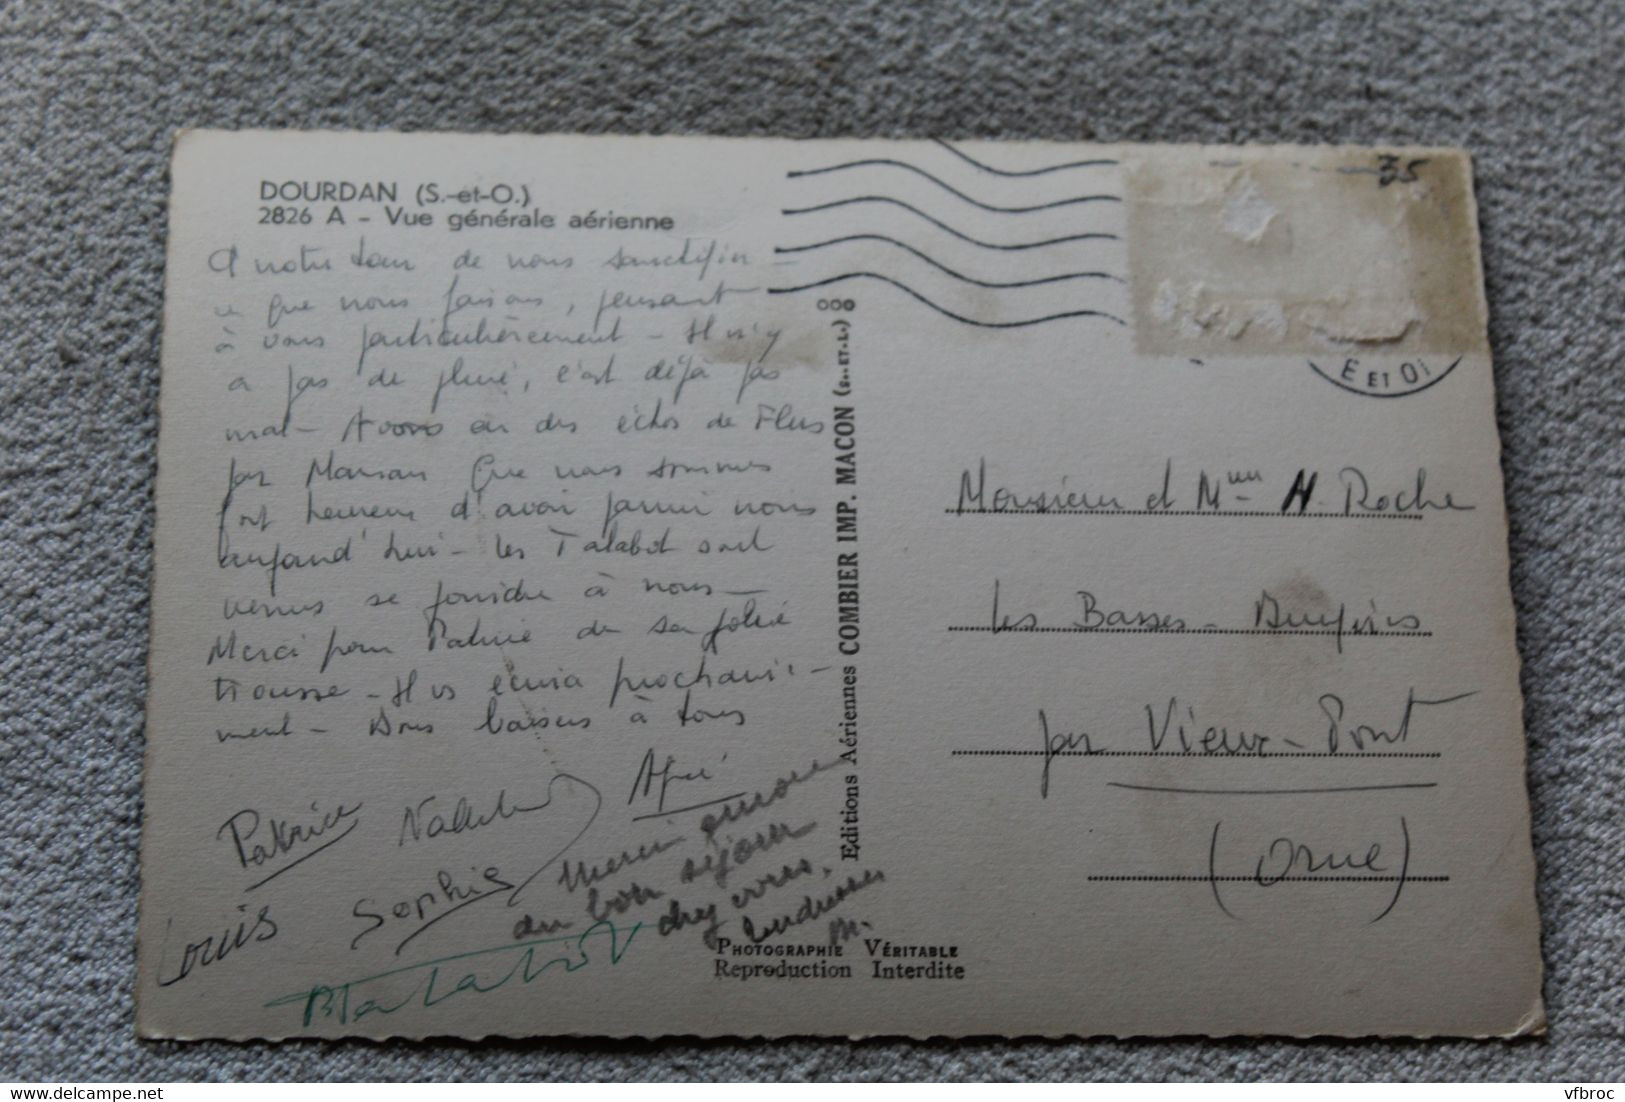 DOURDAN (S.-et-O.)
2826 A - Vue générale aérienne
A notre tour de nous sanctifier -
ce que nous faisons, pensant
à vous particulièrement - Il n'y
a pas de pluie, c'est déjà pas
mal - Avons eu des échos de Flers
par Maman Que nous sommes
fort heureux d'avoir parmi nous
aujourd'hui - Les Talabot sont
venus se joindre à nous -
Merci pour Patrice de sa jolie
trousse - Il vs écrira prochaine-
ment - Bons baisers à tous
Patrice
Sophie
Louis
Merci encore
du bon séjour
chez vous.
Tendresses
M.
BTalabot
35
E ET OI
Editions Aériennes COMBIER IMP. MACON (S.-ET-L.)
PHOTOGRAPHIE VÉRITABLE
Reproduction Interdite
Monsieur et Mme H. Roche
Les Basses-
par Vieux-Pont
(Orne)
vfbroc